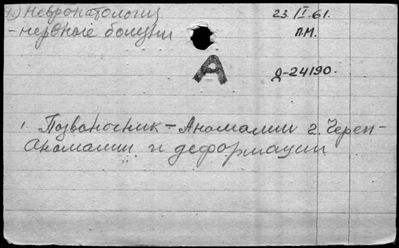 Невропатология
- нервные болезни
23.IV.61.
п.н.
А
д-24190.
1. Позвоночник - Аномалии 2. Череп -
Аномалии и деформации